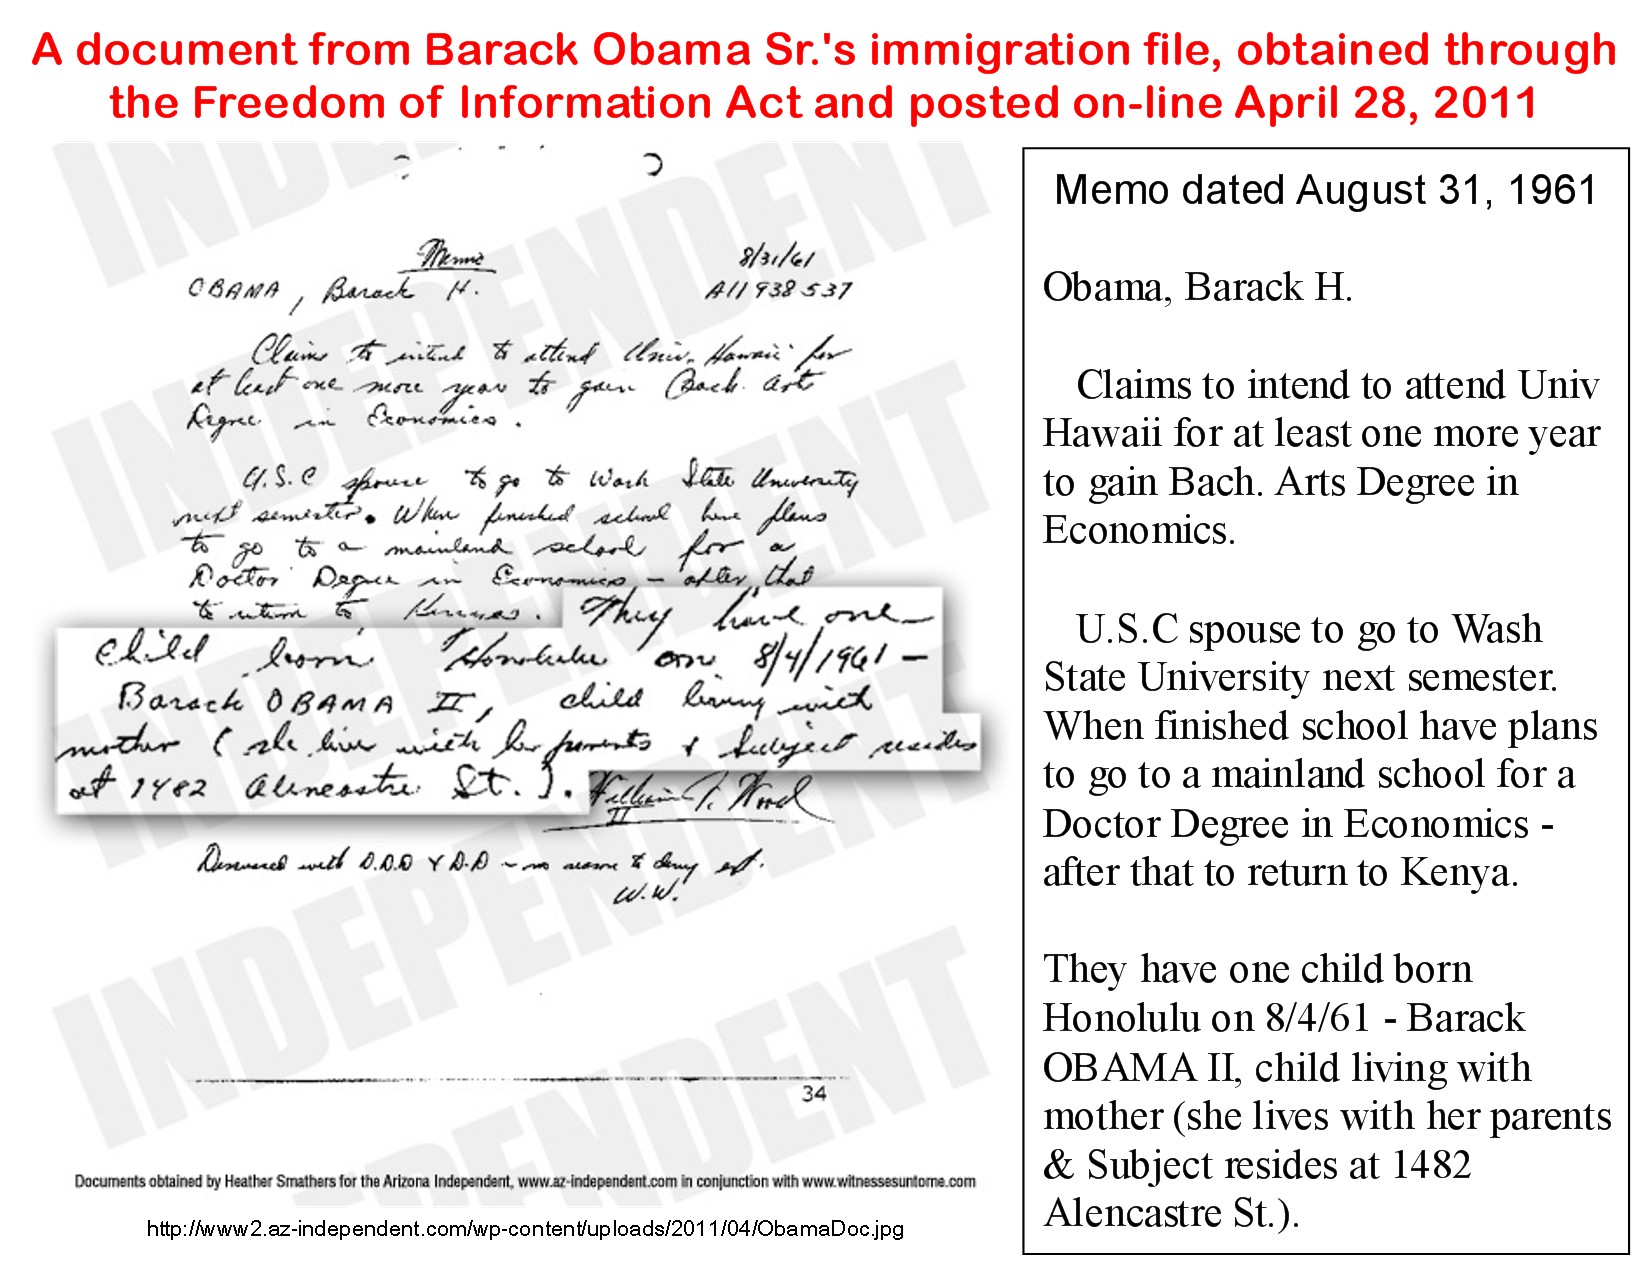 A document from Barack Obama Sr.'s immigration file, obtained through
the Freedom of Information Act and posted on-line April 28, 2011
INDEPENDENT
INDEPENDENT
INDEPENDENT
INDEPENDENT
INDEPENDENT
Memo
8/31/61
OBAMA, Barack H.
A11 938 537
Claims to intend to attend Univ. Hawaii for
at least one more year to gain Bach. Arts
Degree in Economics.
U.S.C spouse to go to Wash State University
next semester. When finished school have plans
to go to a mainland school for a
Doctor Degree in Economics - after that
to return to Kenya. They have one
child born Honolulu on 8/4/1961 -
Barack OBAMA II, child living with
mother (she lives with her parents & Subject resides
at 1482 Alencastre St.).
William T. Wood
II
Discussed with D.D.O & D.D - no reason to deny ext.
W.W.
34
Documents obtained by Heather Smathers for the Arizona Independent, www.az-independent.com in conjunction with www.witnessesuntome.com
http://www2.az-independent.com/wp-content/uploads/2011/04/ObamaDoc.jpg
Memo dated August 31, 1961
Obama, Barack H.
Claims to intend to attend Univ
Hawaii for at least one more year
to gain Bach. Arts Degree in
Economics.
U.S.C spouse to go to Wash
State University next semester.
When finished school have plans
to go to a mainland school for a
Doctor Degree in Economics -
after that to return to Kenya.
They have one child born
Honolulu on 8/4/61 - Barack
OBAMA II, child living with
mother (she lives with her parents
& Subject resides at 1482
Alencastre St.).